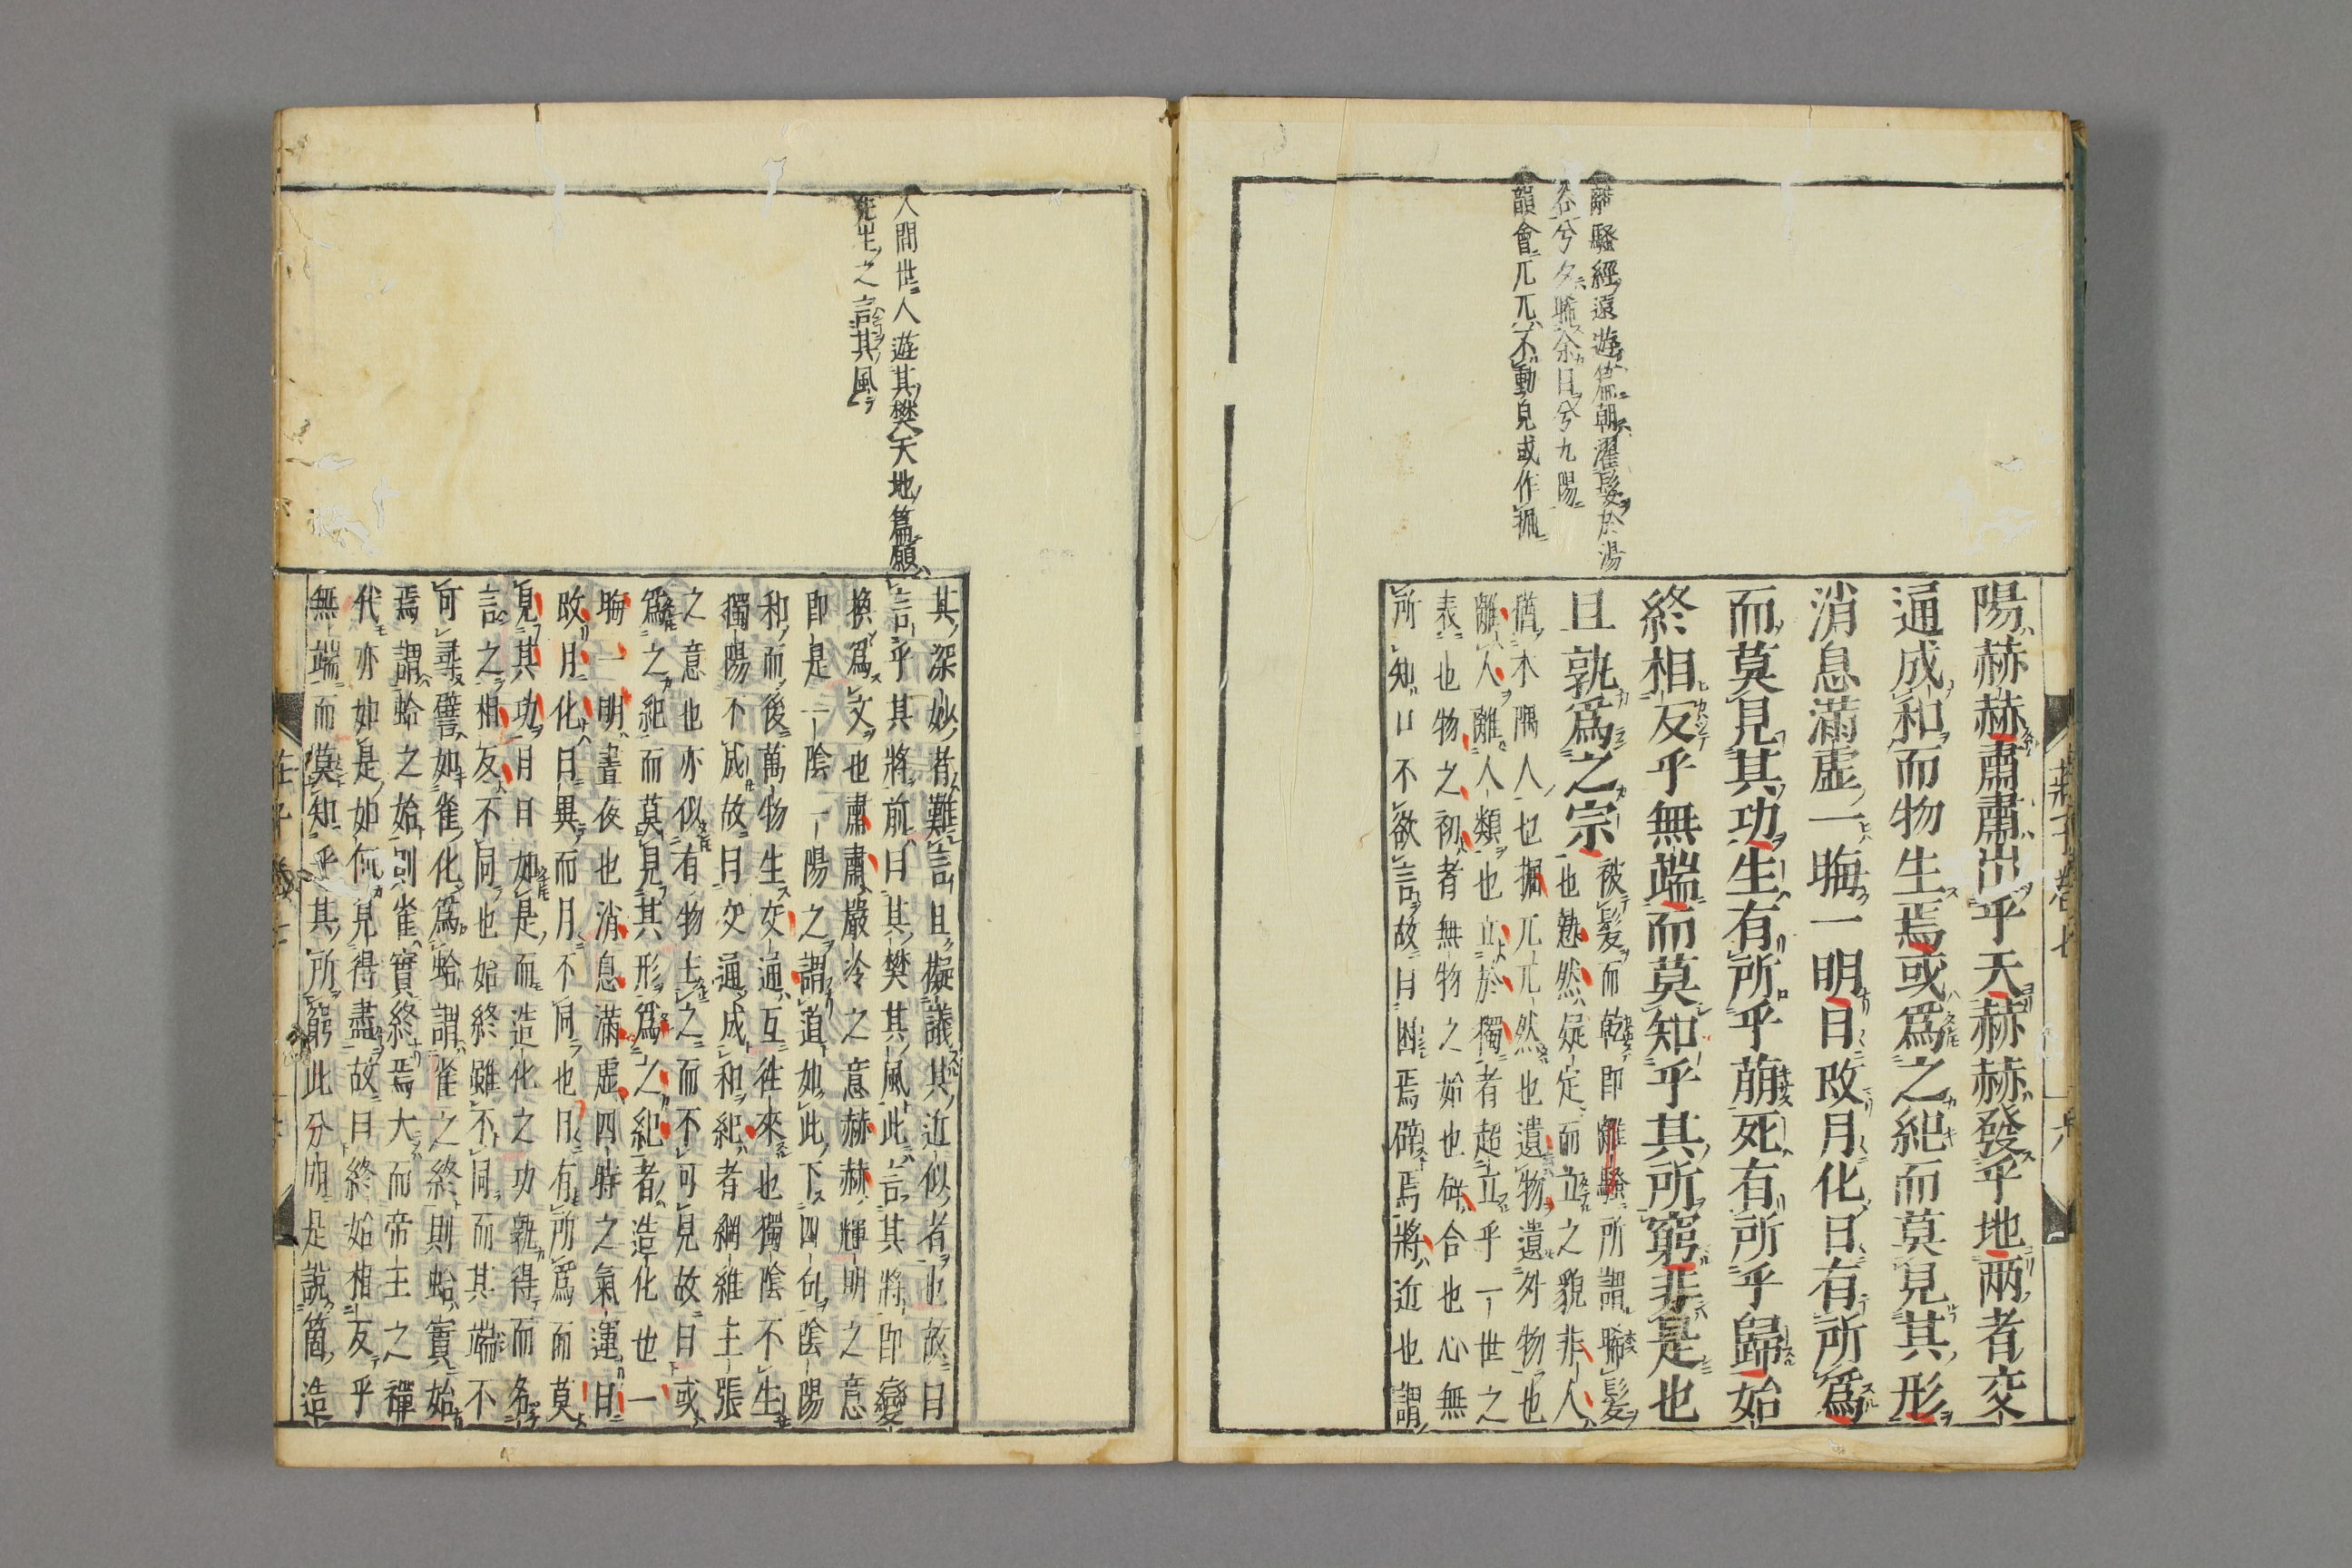 離騷經遠遊篇朝濯髮於湯
谷兮夕晞余目兮九陽
韻會兀兀不動皃或作掘
陽赫赫肅肅出乎天赫赫發乎地兩者交
通成和而物生焉或爲之紀而莫見其形
消息滿虛一晦一明日改月化日有所爲
而莫見其功生有所乎萠死有所乎歸始
終相反乎無端而莫知乎其所窮非是也
且孰爲之宗
被髮而乾即離騷所謂晞髮
也慹然凝定而立之貌非人
猶木偶人也掘兀兀然也遺物遺外物也
離人離人類也立於獨者超立乎一世之
表也物之初者無物之始也併合也心無
所知口不欲言故曰困焉辟焉將近也謂
莊子卷七
人間世人遊其樊天地篇願
先生之言其風
其深妙者難言且擬議其近似者也故曰
言乎其將前曰其樊其風此言其將即變
換爲文也肅肅嚴冷之意赫赫輝明之意
即是一陰一陽之謂道如此下四句陰陽
和而後萬物生交通互徃來也獨陰不生
獨陽不成故曰交通成和紀者綱維主張
之意也亦似有物主之而不可見故曰或
爲之紀而莫見其形爲之紀者造化也一
晦一明晝夜也消息滿虛四時之氣運日
改月化日異而月不同也日有所爲而莫
見其功月日如是而造化之功孰得而名
言之相反不同也始終雖不同而其端不
可尋譬如雀化爲蛤謂雀之終則蛤實始
焉謂蛤之始則雀實終焉大而帝王之禪
代亦如是如何見得盡故曰終始相反乎
無端而莫知乎其所窮此分明是說箇造